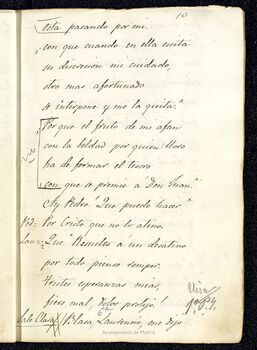 10
está pasando por mí.
con que cuando en ella escita
su discrecion mi cuidado,
otro mas afortunado
se interpone y me la quita."
Porque el fruto de mi afan
con la beldad por quien lloro
ha de formar el tesoro
con que se premió a Don Juan."
Ay Pedro! Que puedo hacer"
Ped= Por Cristo que no lo atino.
Lau= Que" Resuelto a un desatino
por todo pienso romper.
Tristes esperanzas mias,
fiero mal, dolor prolijo!
Sale Clara Clara, Laurencio, me dijo
No
Ayuntamiento de Madrid